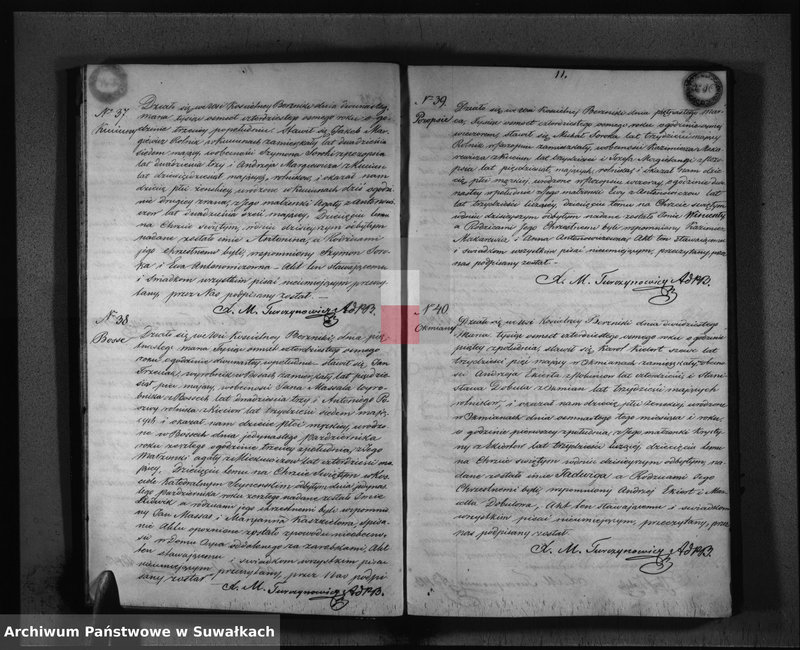 11.
N° 37
Kuciuny
Działo się we wsi Kościelney Berzniki dnia
marca tysiąc osmset czterdziestego osmego roku o go-
dzinie trzeciey popołudniu. Stawił się Jakob Mar-
giewicz Rolnik w Kucunach zamieszkały lat dwadzieścia
siedem maiący, w obecności Szymona
lat dwadzieścia trzy i Andrzeja Margiewicza z Kuciun
lat maiących, rolników, i okazał nam
dziecię płci żeńskiey, urodzone w Kuciunach dziś o godzi-
nie drugiey z rana, z Jego małżonki Agaty z Antono-
wiczow lat dwadzieścia maiącey. Dziecięciu temu
na Chrzcie Świętym, w dniu dzisieyszym odbytym
nadane zostało imie Antonina, a Rodzicami
jego chrzestnemi byli, wspomniony Szymon Soro-
ka i Ewa Antonowiczowna. Akt ten stawaiącemu
i Świadkom wszystkim pisać nieumieiącym, przeczy-
tany, przez Nas podpisany został.
X. M. Turczynowicz
N° 38
Bosse
Działo się we wsi Kościelney Berzniki, dnia pię-
tnastego marca tysiąc osmset czterdziestego osmego
roku o godzinie dwunastey w południe. Stawił się Jan
wyrobnik w Bossach zamieszkały lat pięćdzie-
siąt pięć maiący, w obecności Jana Massala wyro-
bnika z Bossów lat dwadzieścia trzy i Antoniego
rolnika z Kuciun lat trzydzieści siedem maią-
cych i okazał nam dziecię płci męzkiey urodzo-
ne w Bossach dnia jedynastego Października
roku zeszłego o godzinie trzeciey z południa, z Jego
Małżonki Agaty z lat czterdzieści ma-
iącey. Dziecięciu temu na Chrzcie Świętym w Koś-
ciele Katedralnym Seyneńskim odbytym dnia jedynas-
tego Października roku zeszłego nadane zostało Imie
Ludwik a rodzicami jego chrzestnemi byli wspomnio-
ny Jan Massal i Maryanna spisa-
nie Aktu opoznione zostało z powodu nieobecno-
ści w Domu Oyca oddalonego za zarobkami, Akt
ten stawaiącemu i świadkom wszystkim pisać
nieumieiącym przeczytany, przez Nas podpi-
sany został.
X. M. Turczynowicz
N° 39.
Działo się we wsi Kościelney Berzniki dnia piętnastego Mar-
ca, tysiąc osmset czterdziestego osmego roku, o godzinie osmey
wieczorem, stawił się Michał Soroka lat trzydzieści maiący
Rolnik zamieszkały, w obecności Kazimierza Maka-
rewicza z Kuciun lat trzydzieści i Józefa
lat pięćdziesiąt maiących, rolników i okazał nam dzie-
cię płci męzkiey urodzone wczoray, o godzinie dwu-
nastey w południe z Jego małżonki Ewy z Antonowiczow lat
trzydzieści liczącey, dziecięciu temu na Chrzcie świętym
w dniu dzisieyszym odbytym nadane zostało Imie Wincenty
a Rodzicami Jego Chrzestnemi byli wspomniony Kazimierz
Makarewicz i Anna Antonowiczowna; Akt ten stawaiącemu
i świadkom wszystkim pisać nieumieiącym, przeczytany, przez
nas podpisany został.
X. M. Turczynowicz
N° 40
Okmiany
Działo się we wsi Kościelney Berzniki dnia dwudziestego
Marca tysiąc osmset czterdziestego osmego roku o godzinie
z południa, stawił się Karol Ekiert szewc lat
trzydzieści pięć maiący w Okmianach zamieszkały, w obec-
ności Andrzeja Ekierta lat czterdzieści i Stani-
sława Dobuta z Okmian lat trzydzieści maiących
rolników, i okazał nam dziecię płci żenskiey, urodzone
w Okmianach dnia osmnastego tego miesiąca i roku,
o godzinie pierwszey z południa, z Jego małżonki Krysty-
ny lat trzydzieści liczącey, dziecięciu temu
na Chrzcie świętym w dniu dzisieyszym odbytym, na-
dane zostało imie Jadwiga a Rodzicami Jego
Chrzestnemi byli, wspomniony Andrzej Ekiert i
Dobutowa, Akt ten stawaiącemu i świadkom
wszystkim pisać nieumieiącym, przeczytany, przez
nas podpisany został.
X. M. Turczynowicz
Archiwum Państwowe w Suwałkach